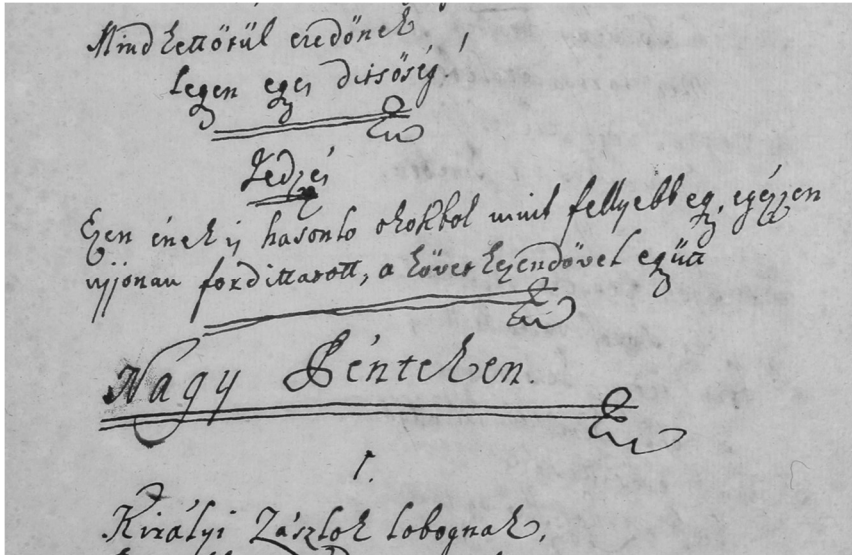 Mindkettőrül eredőnek
Legen eges ditsőség!
Jedzés
Ezen ének is hasonlo okokbol mint fellyebb eg, egészen
ujjonan fordittatott, a következendővel együtt
Nagy Pénteken.
1.
Királyi Zászlok lobognak,